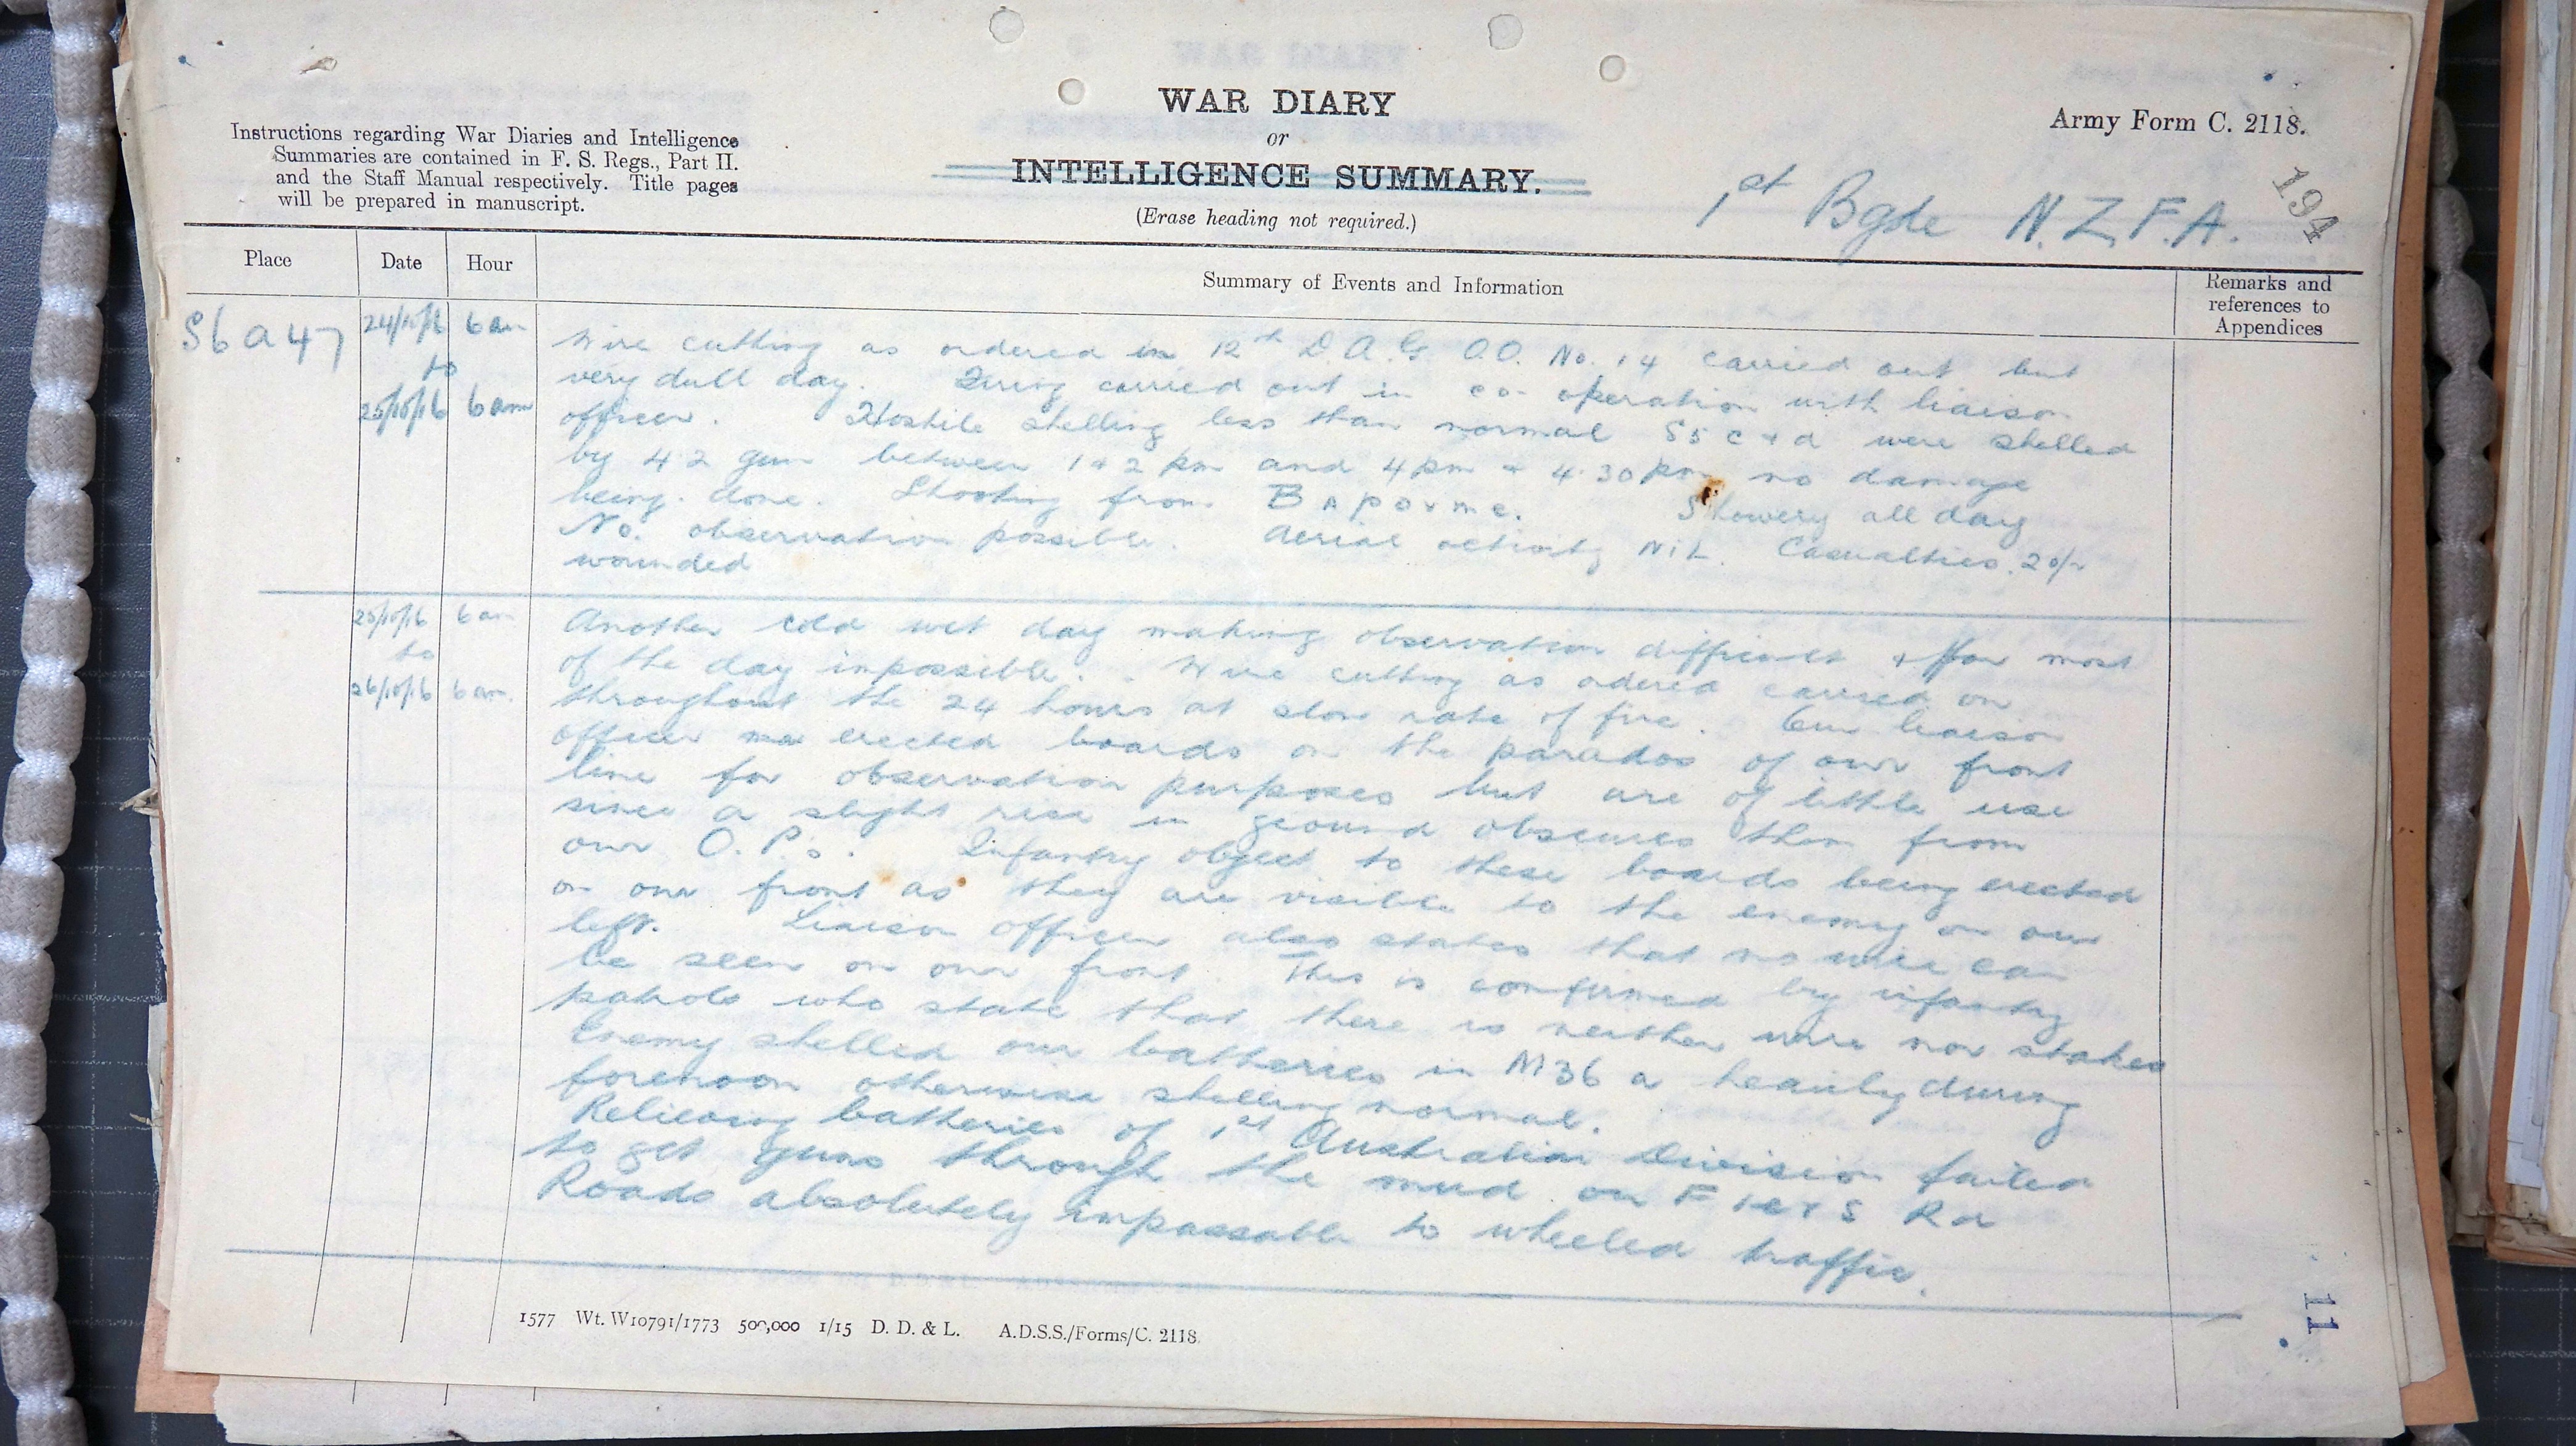 WAR DIARY
or
INTELLIGENCE SUMMARY.
(Erase heading not required.)
Instructions regarding War Diaries and Intelligence
Summaries are contained in F. S. Regs., Part II.
and the Staff Manual respectively. Title pages
will be prepared in manuscript.
Army Form C. 2118.
194
1st Bgde N.Z.F.A.
Place Date Hour Summary of Events and Information Remarks and
references to
Appendices
S6a47 24/10/16 6am
to
25/10/16 6am
Wire cutting as ordered in 12th D.A.G. O.O. No. 14 carried out but
very dull day. Firing carried out in co-operation with liaison
officer. Hostile shelling less than normal S5 c + d were shelled
by 4.2 gun between 1 + 2 pm and 4pm + 4.30pm no damage
being done. Shooting from Bapoume. Showery all day
No observation possible. Aerial activity NiL. Casualties. 2 o/r
wounded
25/10/16 6am
to
26/10/16 6am.
Another cold wet day making observation difficult + for most
of the day impossible. Wire cutting as ordered carried on
throughout the 24 hours at slow rate of fire. Our liaison
officer erected boards on the parados of our front
line for observation purposes but are of little use
since a slight rise in ground obscures them from
our O.Ps. Infantry object to these boards being erected
on our front as they are visible to the enemy on our
left. Liaison officer also states that no wire can
be seen on our front. This is confirmed by infantry
patrols who state that there is neither wire nor stakes
Enemy shelled our batteries in M36 a heavily during
forenoon otherwise shelling normal.
Relieving batteries of 1st Australian Division failed
to get guns through the mud on Flers Rd
Roads absolutely impassable to wheeled traffic.
1577 Wt. W10791/1773 500,000 1/15 D. D. & L. A.D.S.S./Forms/C. 2118.
11